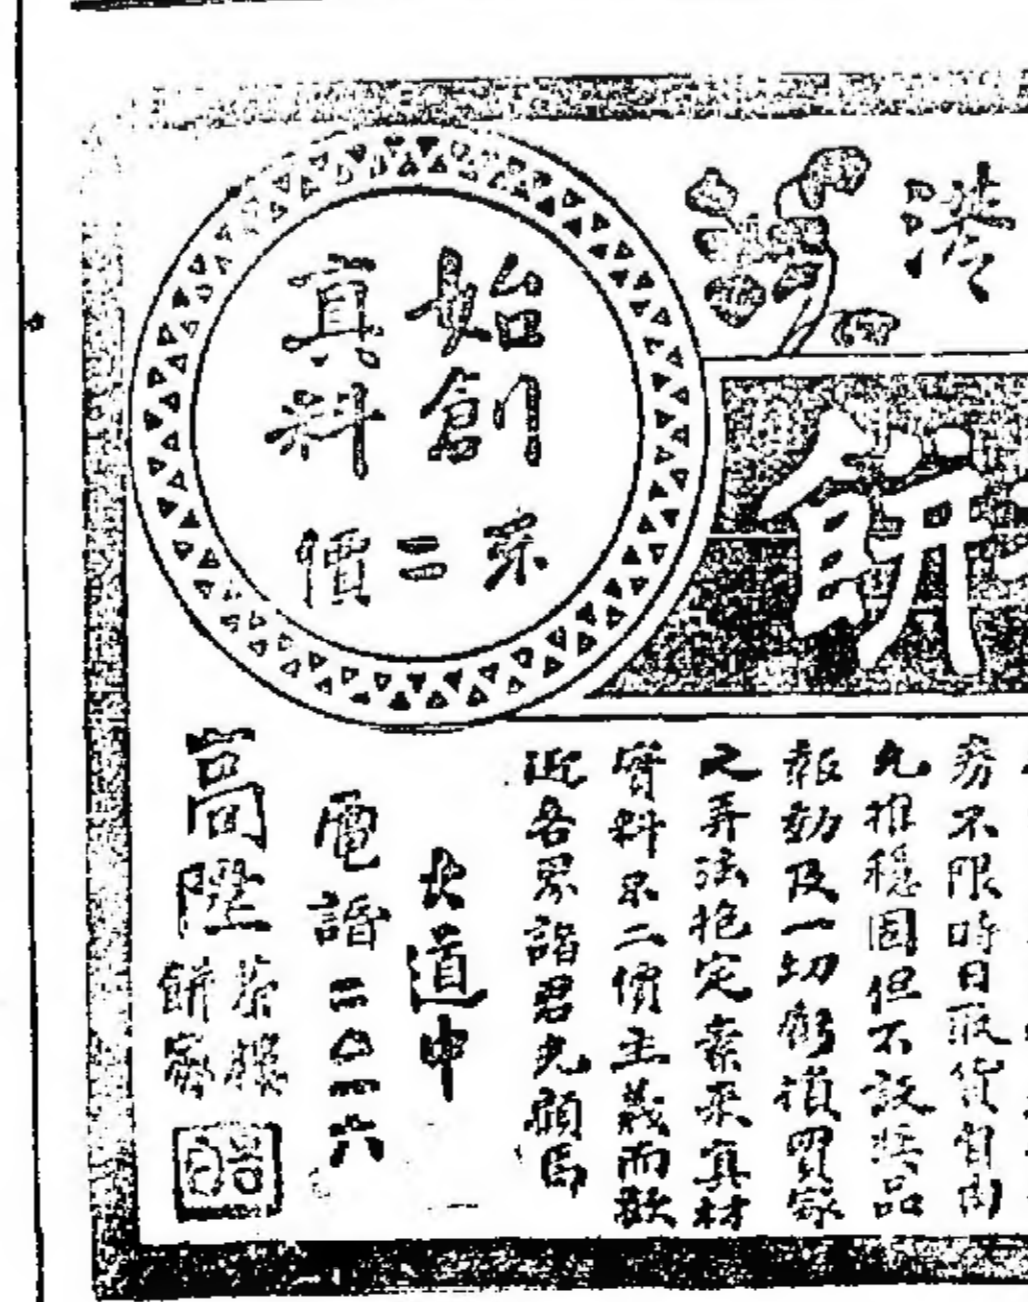 港
餅
始創
真料
不二價
券不限時日取貨自由
尤推穩固但不設獎品
報効及一切 買家
之弄法抱定素來真材
實料不二價主義而歡
迎各界諸君光顧焉
大道中
電話二〇二六
高陞茶樓餅家